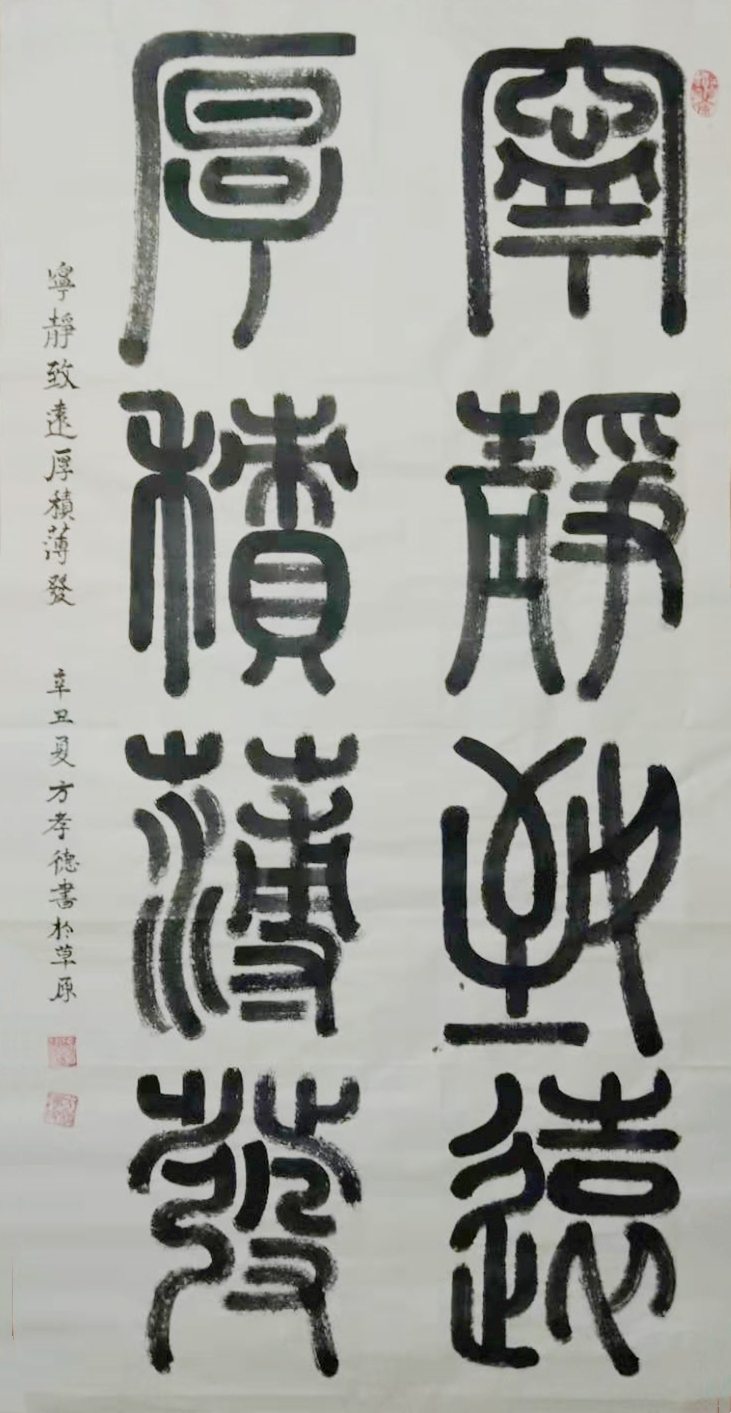 寧靜致遠
厚積薄發
寧靜致遠厚積薄發 辛丑夏方孝德書於草原